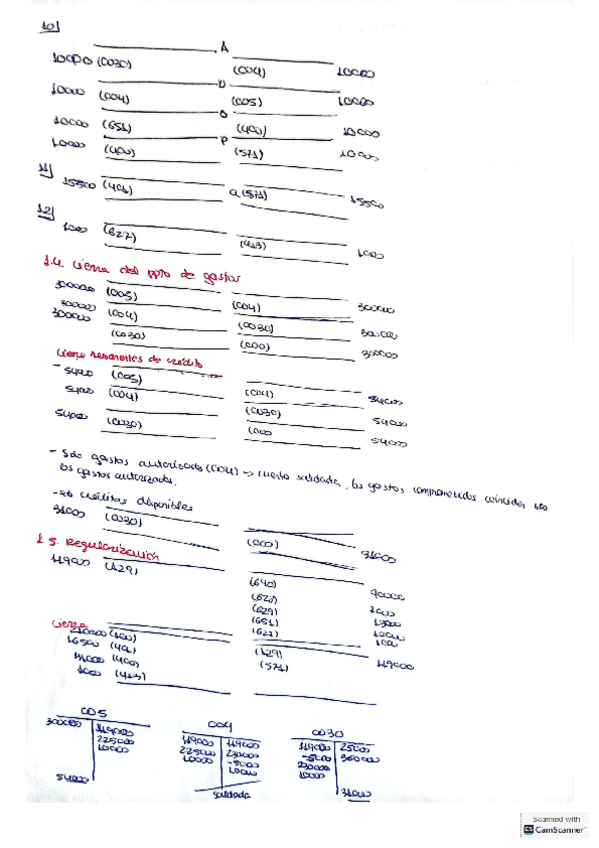 10)
A
10000 (0030) (004) 10000
D
10000 (004) (005) 10000
O
10000 (651) (400) 10000
P
10000 (400) (571) 10000
11)
15500 (401) a (571) 15500
12)
1000 (627) (413) 1000
1.4. Cierre del ppto de gastos
300000 (005) (004) 300000
300000 (004) (0030) 300000
300000 (0030) (000) 300000
Cierre remanentes de crédito
- 54000 (005) (004) 54000
54000 (004) (0030) 54000
54000 (0030) (000 54000
- Sdo gastos autorizados (004) -> cuenta saldada, los gastos comprometidos coinciden con
los gastos autorizados.
- sdo créditos disponibles
31000 (0030) (000) 31000
1.5. Regularización
119000 (129)
(640)
(627)
(629)
(651)
(621)
Cierre
(100) (129) 119000
(401) (571)
(400)
1000 (413)
005
300000 119000
225000
10000
54000
004
119000 119000
225000 230000
10000 -5000
10000
saldada
0030
119000 25000
-5000 360000
230000
10000
31000
Scanned with
CamScanner